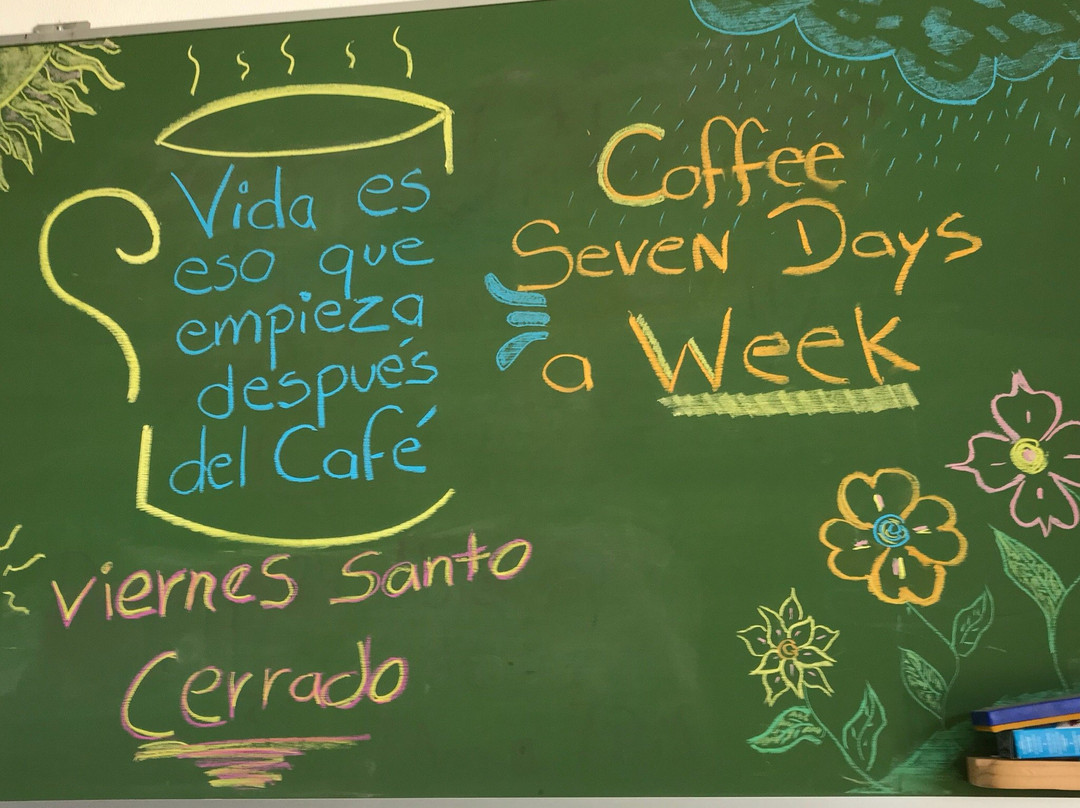 Vida es
eso que
empieza
después
del Café
Coffee
Seven Days
a Week
Viernes Santo
Cerrado